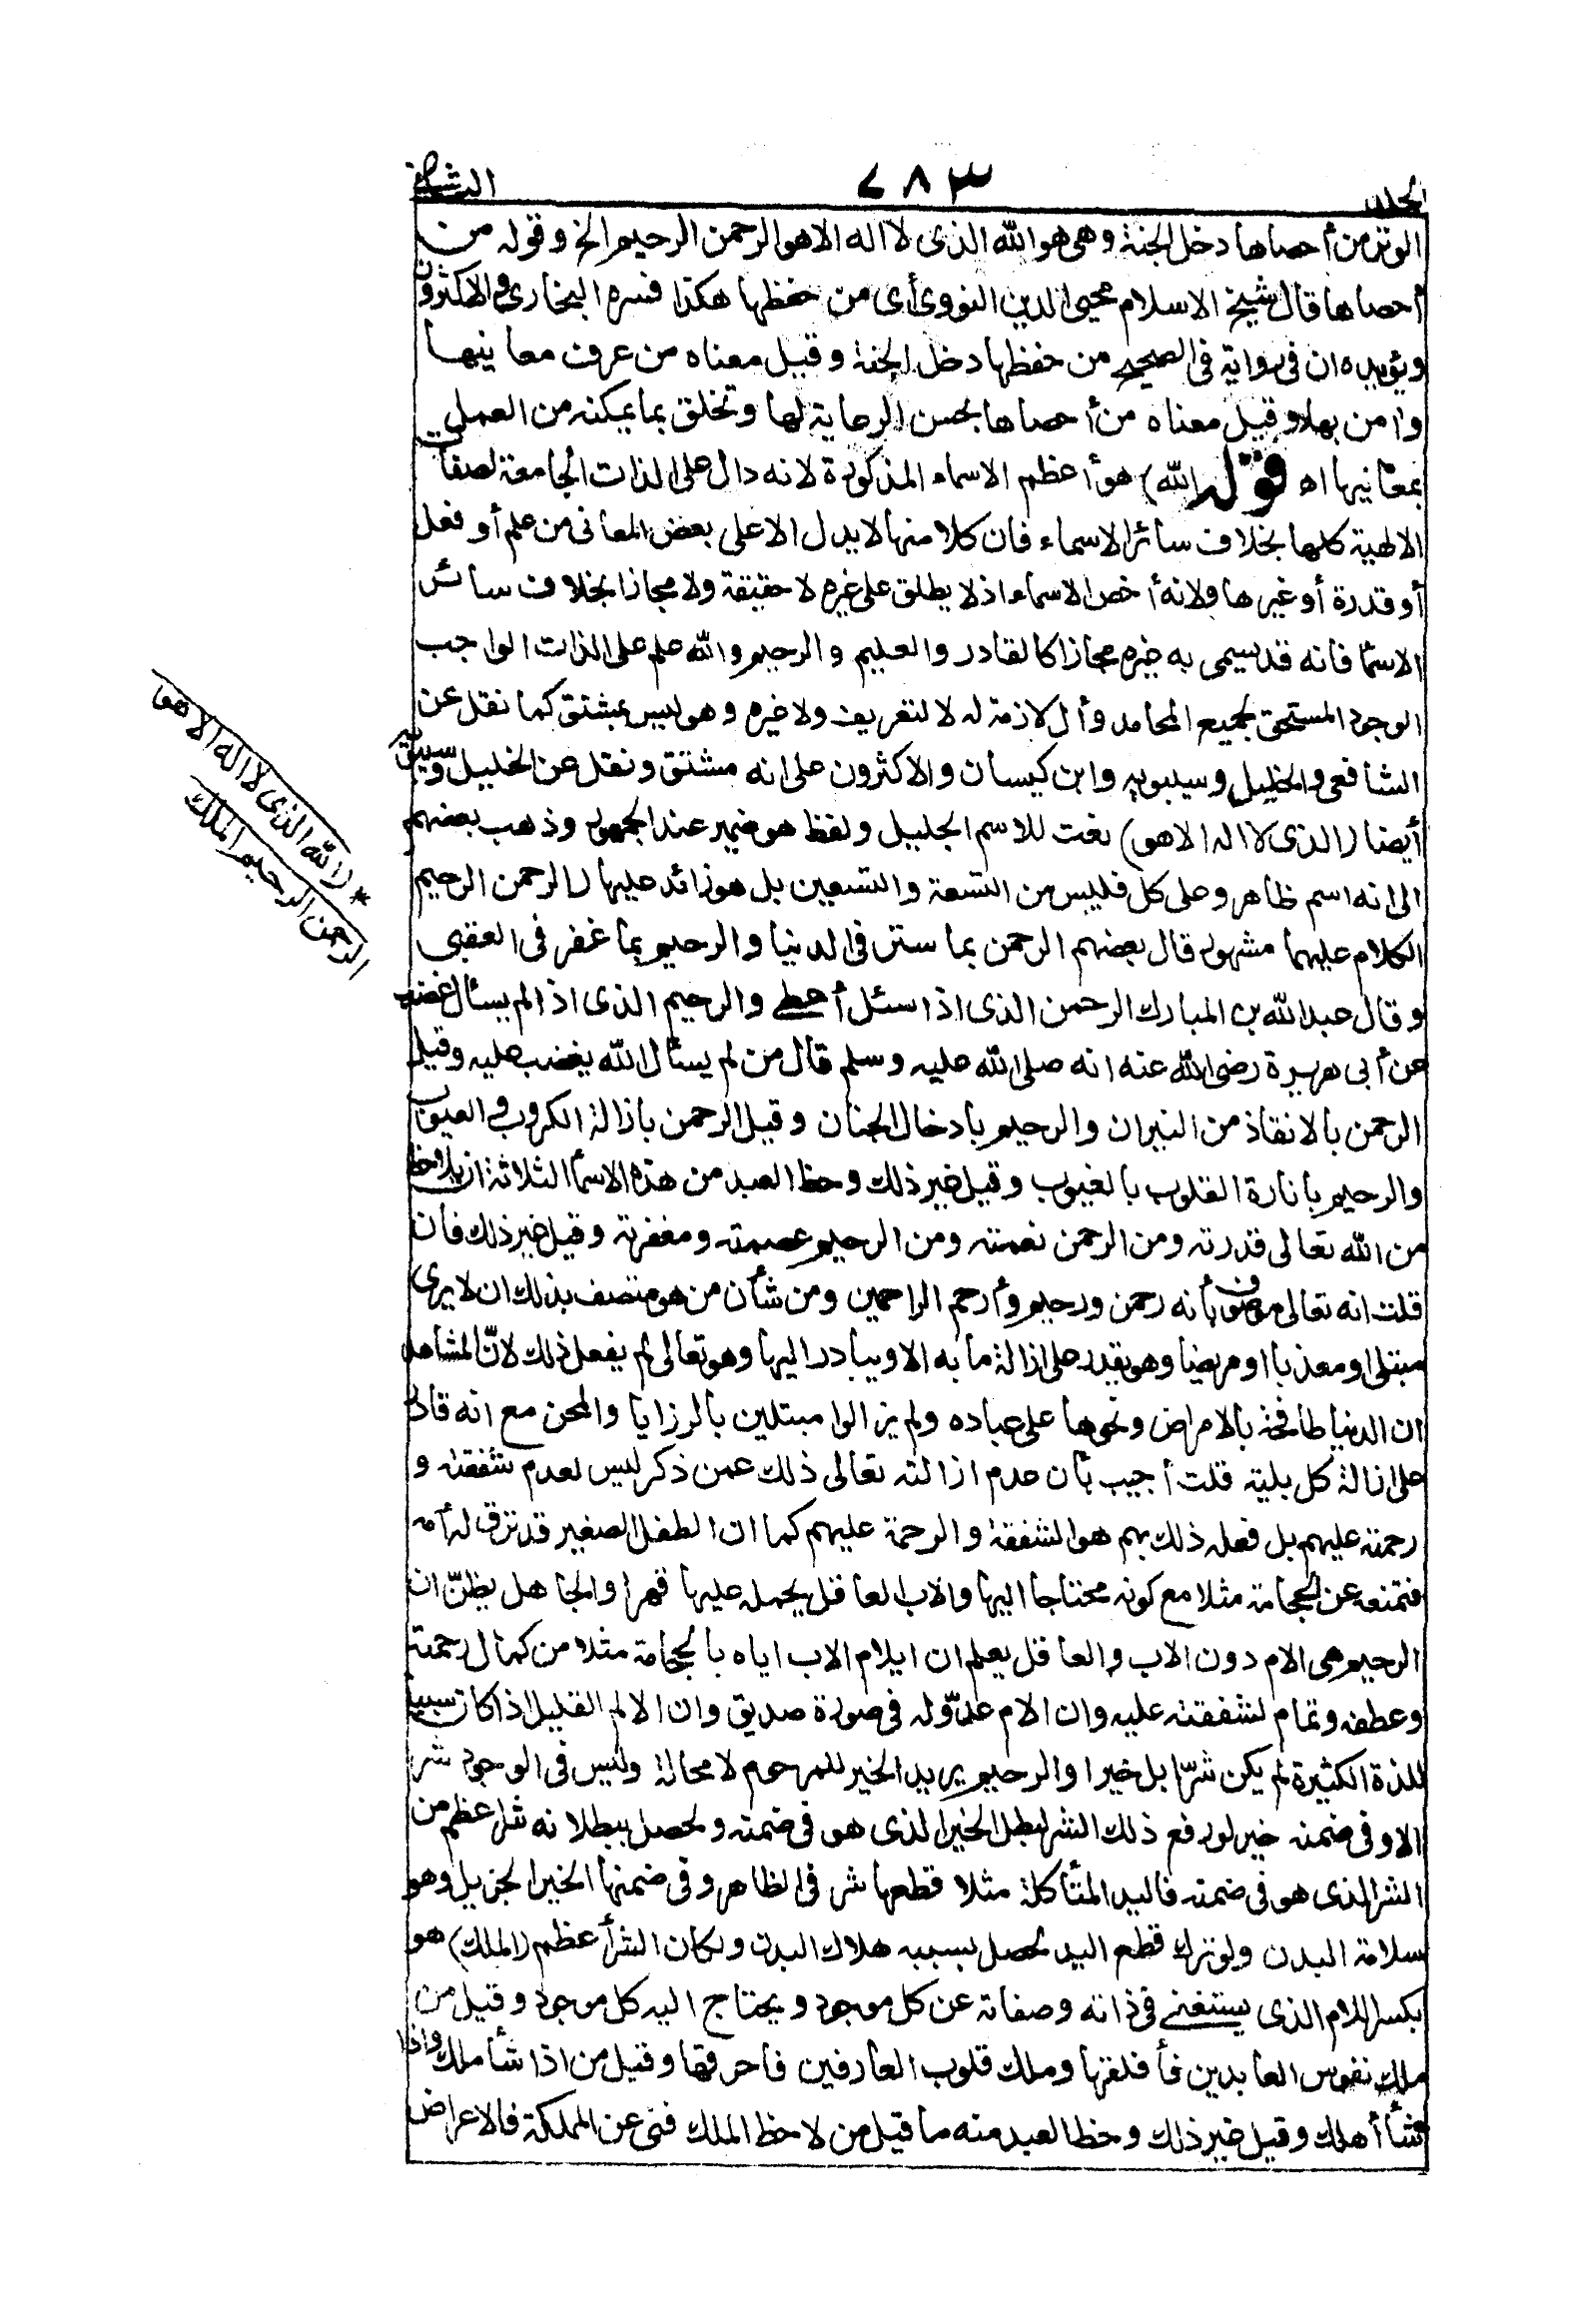 المجلد ٢٨٣ الثانى
الوتر من أحصاها دخل الجنة وهى هو الله الذى لا اله الا هو الرحمن الرحيم الخ وقوله من
أحصاها قال شيخ الاسلام محيى الدين النووى أى من حفظها هكذا فسره البخارى والاكثرون
ويؤيده ان فى رواية فى الصحيح من حفظها دخل الجنة وقيل معناه من عرف معانيها
وامن بها وقيل معناه من أحصاها بحسن الرعاية لها وتخلق بما يمكنه من العمل
بمعانيها اه قوله (الله) هو أعظم الاسماء المذكورة لانه دال على الذات الجامعة لصفات
الالهية كلها بخلاف سائر الاسماء فان كلا منها لا يدل الا على بعض المعانى من علم أو فعل
أو قدرة أو غيرها ولانه أخص الاسماء اذ لا يطلق على غيره لا حقيقة ولا مجازا بخلاف سائر
الاسما فانه قد يسمى به غيره مجازا كالقادر والعليم والرحيم والله علم على الذات الواجب
الوجود المستحق لجميع المحامد وأل لازمة له لا لتعريف ولا غيره وهو ليس بمشتق كما نقل عن
الشافعى والخليل وسيبويه وابن كيسان والاكثرون على انه مشتق ونقل عن الخليل وسيبويه
أيضا (الذى لا اله الا هو) نعت للاسم الجليل ولفظ هو ضمير عند الجمهور وذهب بعضهم
الى انه اسم ظاهر وعلى كل فليس من التسعة والتسعين بل هو زائد عليها (الرحمن الرحيم
الكلام عليهما مشهور قال بعضهم الرحمن بما ستر فى الدنيا والرحيم بما غفر فى العقبى
وقال عبد الله بن المبارك الرحمن الذى اذا سئل أعطى والرحيم الذى اذا لم يسأل غضب
عن أبى هريرة رضى الله عنه انه صلى الله عليه وسلم قال من لم يسأل الله يغضب عليه وقيل
الرحمن بالانقاذ من النيران والرحيم بادخال الجنان وقيل الرحمن بازالة الكروب والعيوب
والرحيم بانارة القلوب بالغيوب وقيل غير ذلك وحظ العبد من هذه الاسما الثلاثة ان يلاحظ
من الله تعالى قدرته ومن الرحمن نعمته ومن الرحيم عصمته ومغفرته وقيل غير ذلك فان
قلت انه تعالى موصوف بأنه رحمن ورحيم وأرحم الراحمين ومن شأن من هو متصف بذلك ان لا يرى
مبتلى او معذبا او مريضا وهو يقدر على ازالة ما به الا ويبادر اليها وهو تعالى لم يفعل ذلك لانّ المشاهد
ان الدنيا طافحة بالامراض ونحوها على عباده ولم يزالوا مبتلين بالرزايا والمحن مع انه قادر
على ازالة كل بلية قلت أجيب بأن عدم ازالته تعالى ذلك عمن ذكر ليس لعدم شفقته و
رحمته عليهم بل فعله ذلك بهم هو الشفقة والرحمة عليهم كما ان الطفل الصغير قد ترق له أمه
فتمنعه عن الحجامة مثلا مع كونه محتاجا اليها والاب العاقل يحمله عليها قهرا والجاهل يظنّ ان
الرحيم هى الام دون الاب والعاقل يعلم ان ايلام الاب اياه بالحجامة مثلا من كمال رحمته
وعطفه وتمام لشفقته عليه وان الام عدوّ له فى صورة صديق وان الالم القليل اذا كان سببا
للذة الكثيرة لم يكن شرّا بل خيرا والرحيم يريد الخير للمرحوم لا محالة وليس فى الوجود شر
الا وفى ضمنه خير لو رفع ذلك الشر لبطل الخير الذى هو فى ضمنه ولحصل ببطلانه شر اعظم من
الشر الذى هو فى ضمنه فاليد المتأكلة مثلا قطعها شر فى الظاهر وفى ضمنها الخير الجزيل وهو
سلامة البدن ولو ترك قطع اليد لحصل بسببه هلاك البدن ولكان الشر أعظم (الملك) هو
بكسر اللام الذى يستغنى فى ذاته وصفاته عن كل موجود ويحتاج اليه كل موجود وقيل من
ملك نفوس العابدين فأقلقها وملك قلوب العارفين فاحرقها وقيل من اذا شأ ملك واذا
شأ أهلك وقيل غير ذلك وحظ العبد منه ما قيل من لاحظ الملك فنى عن المملكة فالاعراض
* (الله الذى لا اله الا هو
الرحمن الرحيم الملك